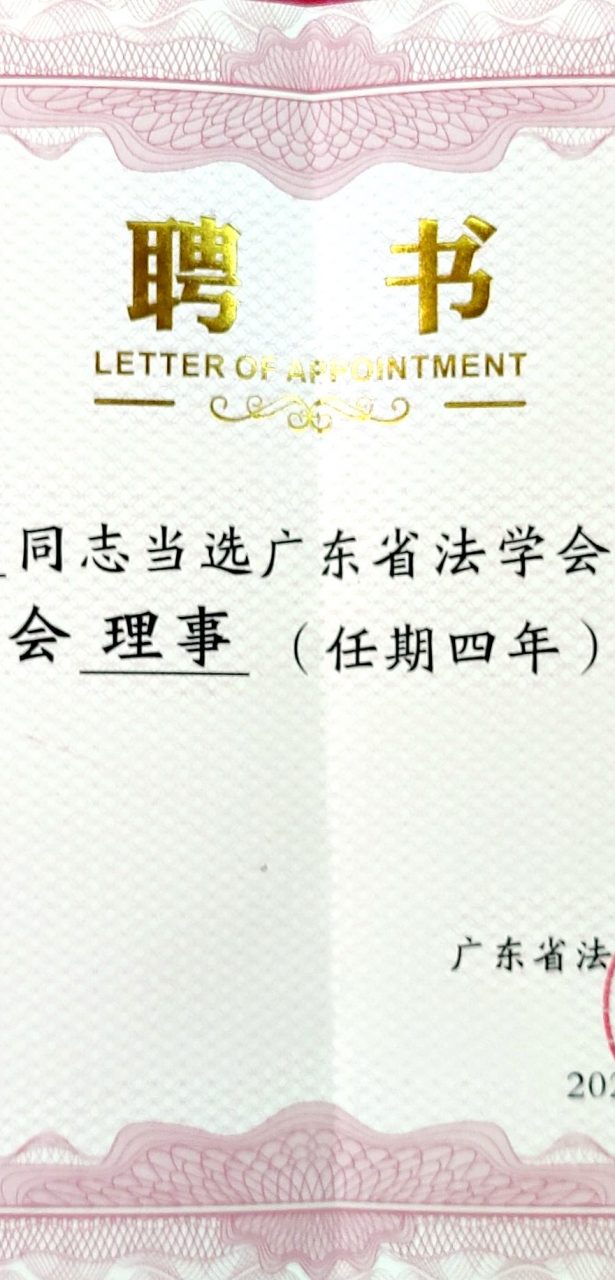 聘书
LETTER OF APPOINTMENT
同志当选广东省法学会
会 理事 （任期四年）
广东省法
202